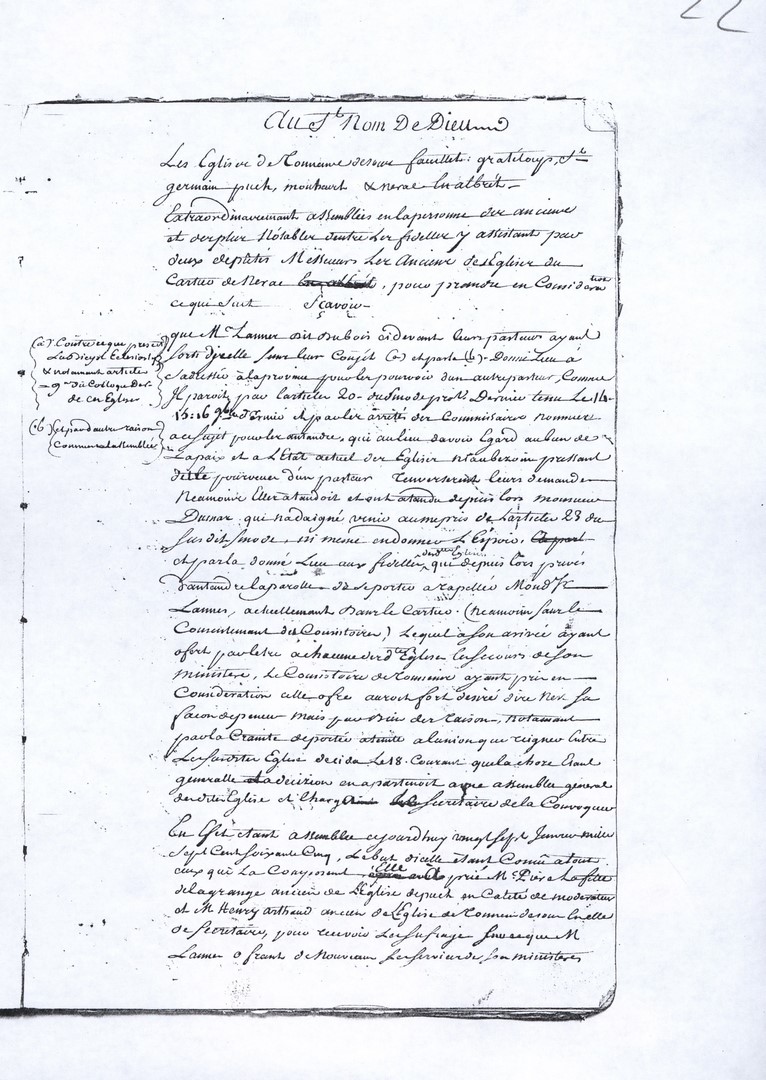 22
Au St Nom De Dieu
Les Eglises de Tonneins dessous fauillet: grateloup, Ste
germain puch, monhurt & nerac En albret
Extraordinairement assemblées en la personne des anciens
et des plus Nôtables dentre Les fidelles y assistant par
deux deputés Messieurs Les Anciens des Eglises du
Cartier de Nerac pour prandre en Consideration
ce qui suit Scavoir
que Mr Lannes dit Dubois cidevant leurs pasteurs ayant
sorti dicelle sans leur Congét (a) et par la (b) Donné Lieu à
Sadresser à la province pour les pourvoir dun autre pasteur, Comme
Il paroit par larticle 20 du sinode Dernier tenue Le 14
15: 16 9bre Dernié et par les arrêtés des Commissaires nommés
a ce sujet pour les antandre, qui au lieu davoir Egard au bien de
La paix et a L'Etat actuel des Eglises et au bezoin pressant
delle pourvenes d'un pasteur renverserent leurs demandes
Neamoins Elles atandoit et ont atandu depuis lors monsieur
Dumas qui na daigné venir au mepris de Larticle 23 du
susdit sinode, ni meme en donner L'Espoir,
et par la donné Lieu aux fidelles desdtes Eglises qui depuis lors privés
dantandre la parolle de se porter a rapellée Mond. Sr
Lannes, actuellement dans le Cartier. (Neamoins sans le
Consentement des Consistoires) Lequel à son arrivée ayant
ofert par letre à chacune desdtes Eglises les secours de son
ministere, Le Consistoire de Tonneins ayant pris en
Consideration cette ofre auroit fort desiré dire Nes sa
facon de penser mais par Bien des Raisons, notamant
par la Crainte de porter atinte a lunion que reigne Entre
Lesdites Eglise decida Le 18. Courant que la chose Etant
generalle la decizion en apartenoit a une assemblée general
desdites Eglise et Charga le Secretaire de la Convoquer
En Effet étant assemblée cejourdhuy vingt sept Janvier mille
Sept Cent Soixante Cinq, Le but dicelle étant Connu a tous
ceux qui La Composent Elle a prié Mr Pierre Lafitte
de lagrange ancien de L'Eglise de puch en Calité de moderateur
et M Henry arthaud ancien de L'Eglise de Tonneins dessous En celle
de Secretaire, pour recevoir Les sufrage sur ce que M
Lannes ofrant de Nouveau Les services de son ministere
(a) Contre ce que prescri
La Dicipe Eclesiastiq
& notamant article
9e du Colloque des
de ces Eglise
(b) et par d'autre raison
Connues a la assemblée